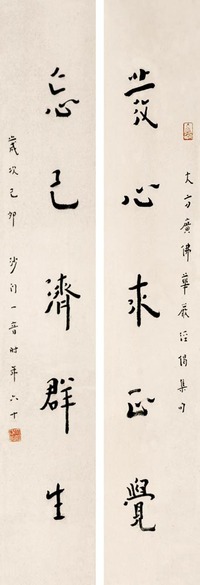 大方廣佛華嚴經偈集句
發心求正覺
忘己濟群生
歲次己卯 沙門一音時年六十